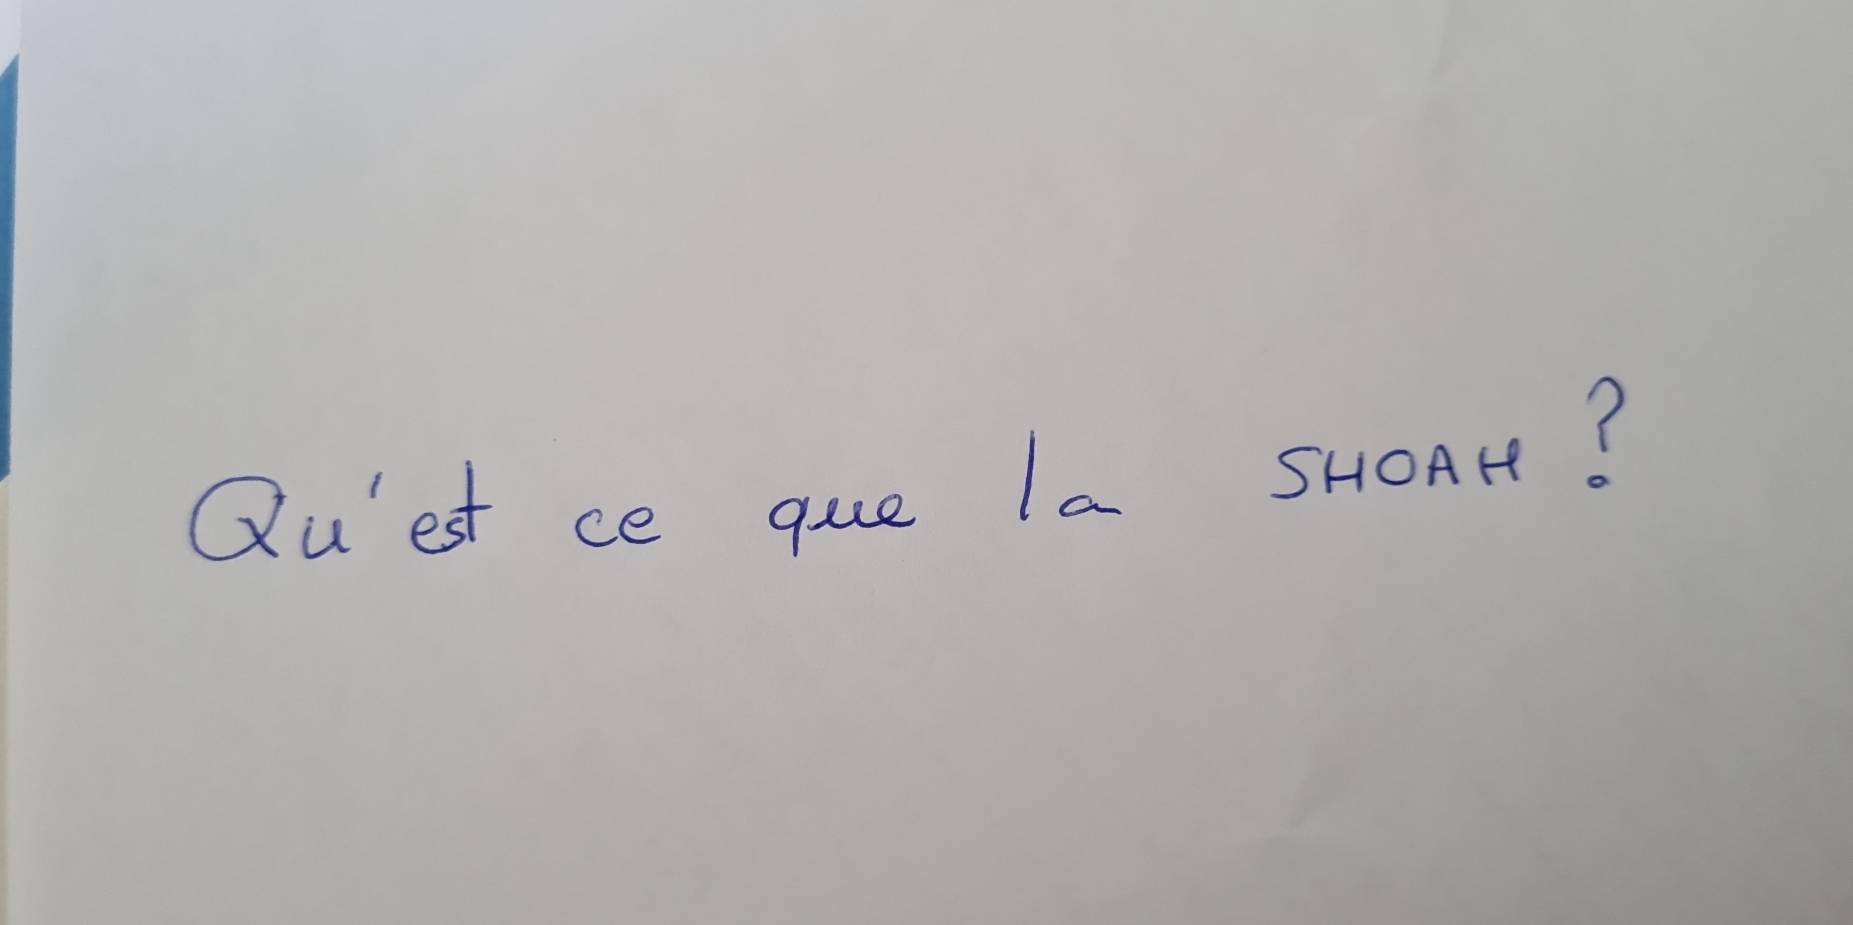 Qu'est ce que la SHOAH ?